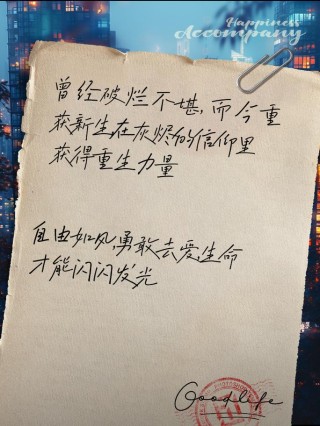 Happiness
Accompany
曾经破烂不堪,而今重
获新生在灰烬的信仰里
获得重生力量
自由如风,勇敢去爱,生命
才能闪闪发光
Goodlife